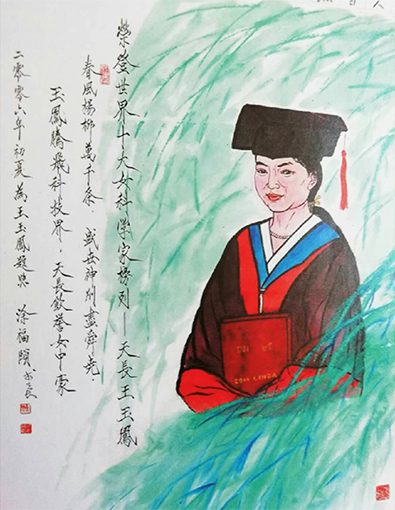 榮登世界十大女科學家榜列——天長王玉鳳
春風楊柳萬千条．盛世神州盡舜堯．
玉鳳騰飛科技界．天長譽女中豪
二零零六年初夏為王玉鳳題 涂福